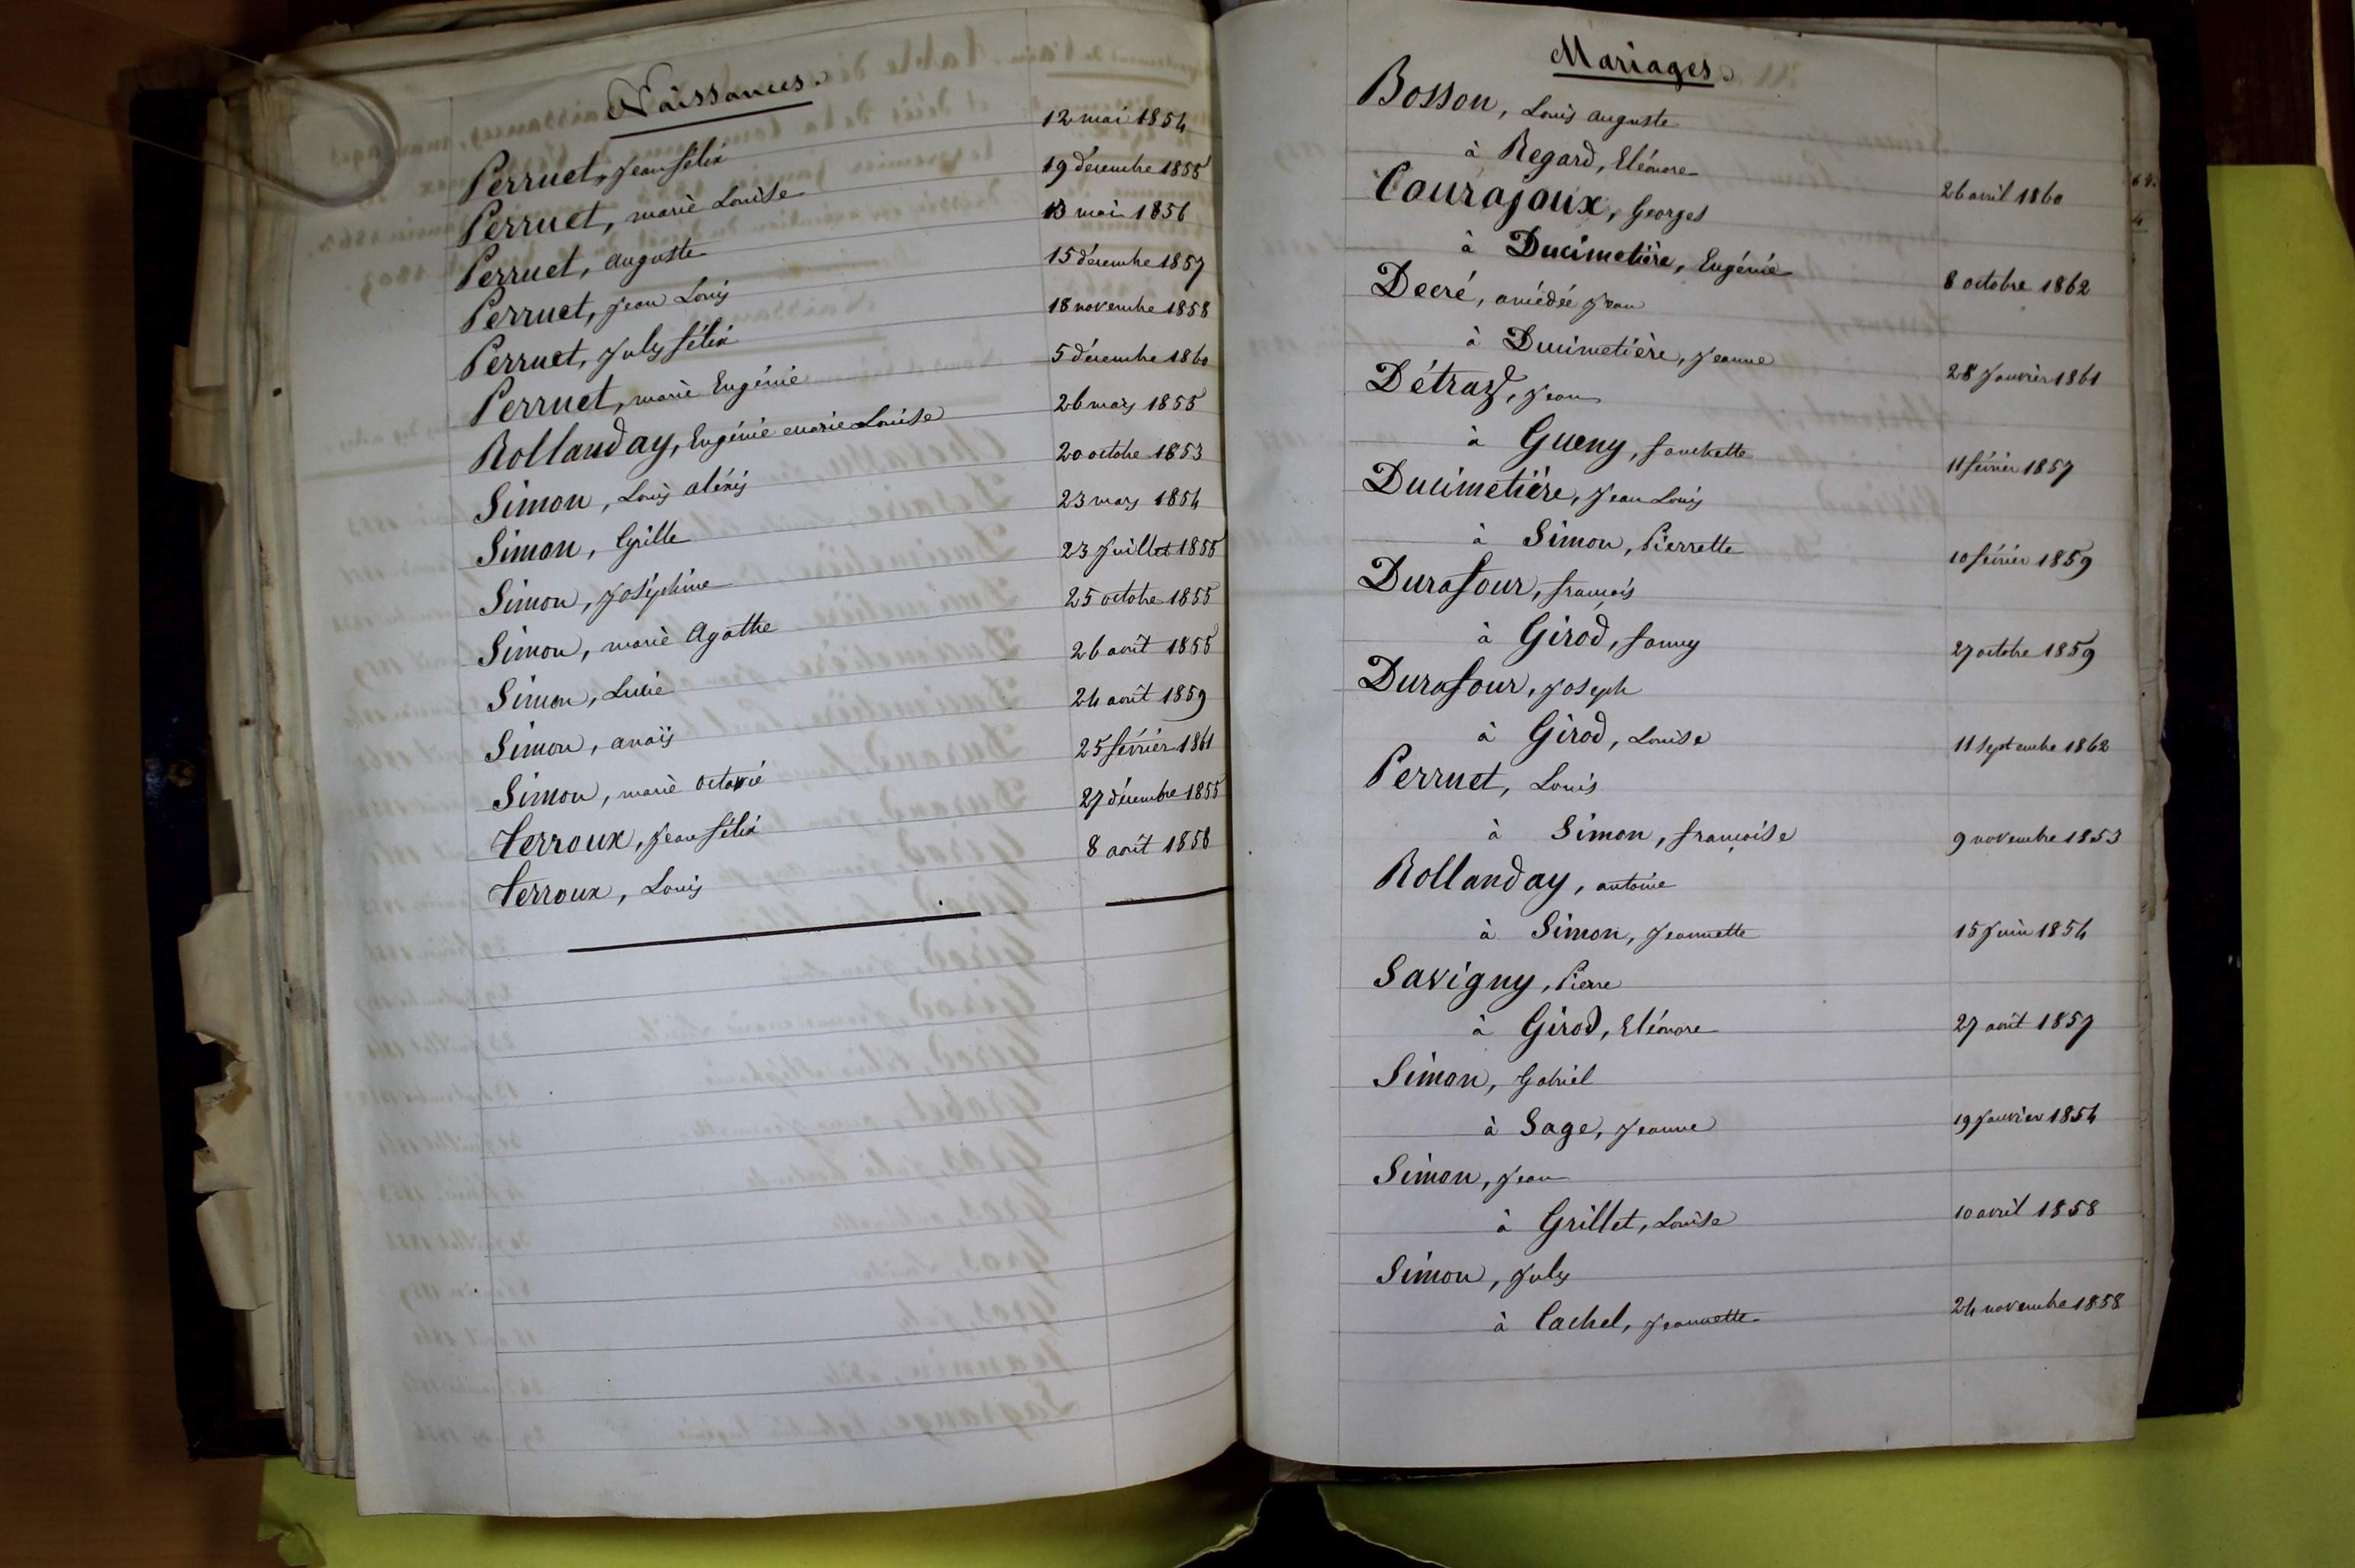 Naissances.
Perruet, Jean félix 12 mai 1854
Perruet, marie Louise 19 décembre 1855
Perruet, auguste 13 mai 1856
Perruet, Jean Louis 15 décembre 1857
Perruet, July félix 18 novembre 1858
Perruet, marie Eugénie 5 décembre 1860
Rollanday, Eugénie marie Louise 26 mars 1855
Simon, Louis aléxis 20 octobre 1853
Simon, Cyrille 23 mars 1854
Simon, Joséphine 23 Juillet 1855
Simon, marie Agathe 25 octobre 1855
Simon, Lucie 26 août 1855
Simon, anaïs 24 août 1859
Simon, marie octavie 25 février 1861
Terroux, Jean félix 27 décembre 1855
Terroux, Louis 8 août 1858
Mariages.
Bosson, Louis auguste
à Regard, Eléonore 26 avril 1860
Courajoux, Georges
à Ducimetière, Eugénie 8 octobre 1862
Decré, amédée Jean
à Ducimetière, Jeanne 28 Janvier 1861
Détraz, Jean
à Gueny, fanchette 11 février 1857
Ducimetière, Jean Louis
à Simon, Pierrette 10 février 1859
Durafour, françois
à Girod, fanny 27 octobre 1859
Durafour, Joseph
à Girod, Louise 11 septembre 1862
Perruet, Louis
à Simon, françoise 9 novembre 1853
Rollanday, antoine
à Simon, Jeannette 15 Juin 1854
Savigny, Pierre
à Girod, Eléonore 27 août 1857
Simon, Gabriel
à Sage, Jeanne 19 Janvier 1854
Simon, Jean
à Grillet, Louise 10 avril 1858
Simon, July
à Cachel, Jeannette 24 novembre 1858